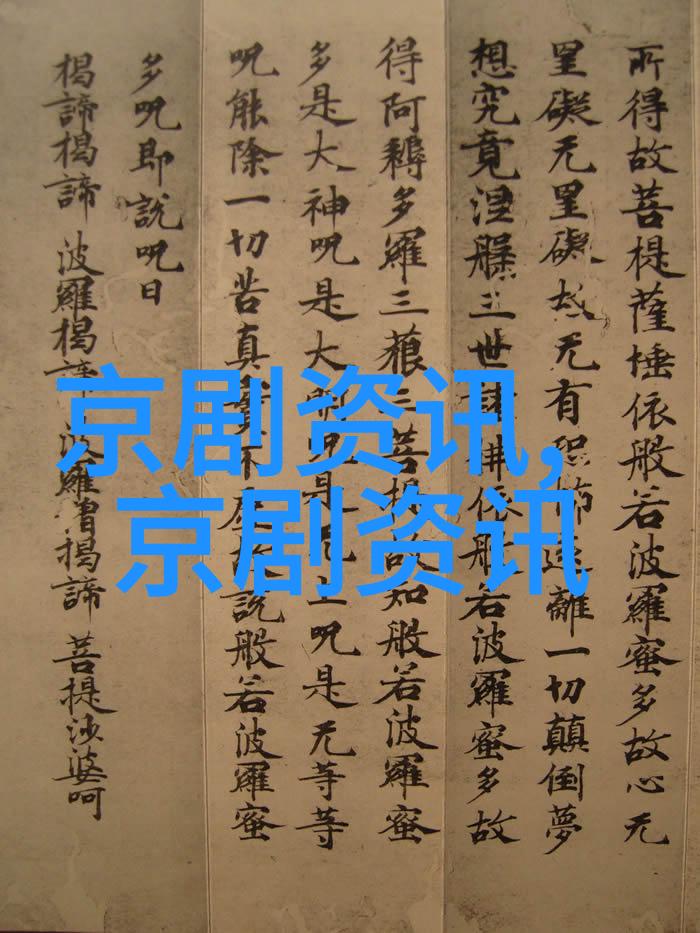 所得故菩提薩埵依般若波羅蜜多故心无
罣礙无罣礙故无有恐怖遠離一切顛倒夢
想究竟涅槃三世諸佛依般若波羅蜜多故
得阿耨多羅三藐三菩提故知般若波羅蜜
多是大神呪是大明呪是无上呪是无等等
呪能除一切苦真實不虛故說般若波羅蜜
多呪即說呪曰
揭諦揭諦 波羅揭諦 波羅僧揭諦 菩提沙婆呵
京剧资讯,
京剧资讯